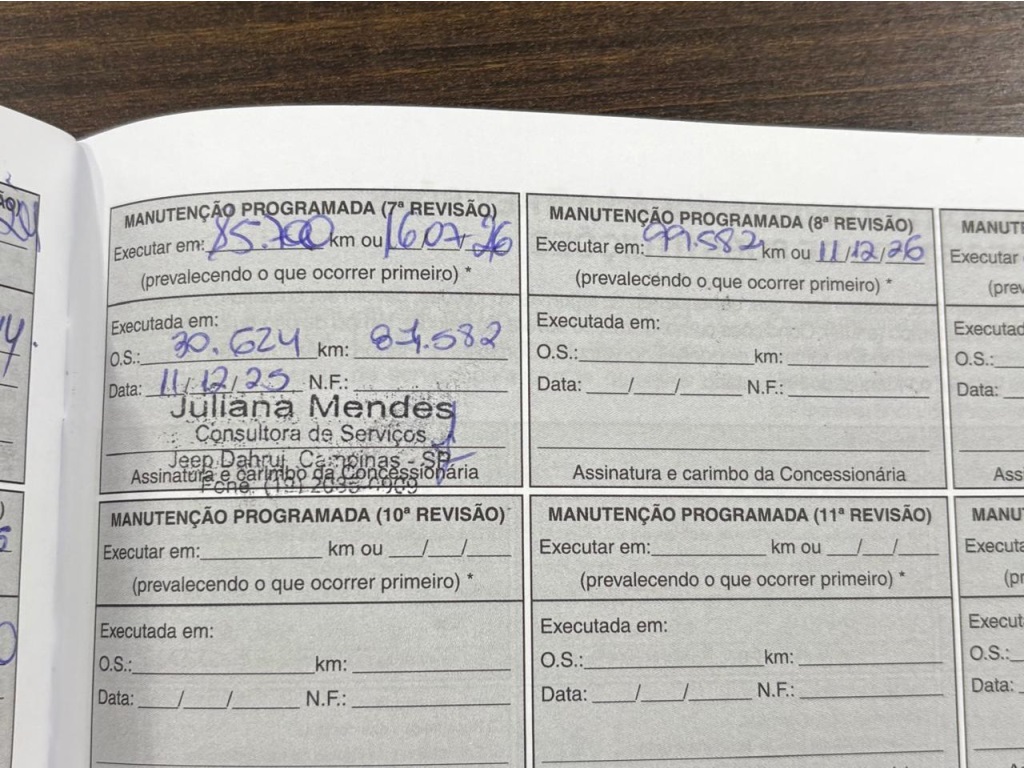 MANUTENÇÃO PROGRAMADA (7ª REVISÃO)
Executar em: 85.700 km ou 16/07/26
(prevalecendo o que ocorrer primeiro) *
Executada em:
O.S.: 30.624 km: 87.582
Data: 11/12/25 N.F.:
Juliana Mendes
Consultora de Serviços
Jeep Dahruj Campinas - SP
Assinatura e carimbo da Concessionária
Fone: (19)
MANUTENÇÃO PROGRAMADA (8ª REVISÃO)
Executar em: 99.582 km ou 11/12/26
(prevalecendo o que ocorrer primeiro) *
Executada em:
O.S.: km:
Data: / / N.F.:
Assinatura e carimbo da Concessionária
MANUT
Executar
(prev
Executad
O.S.:
Data:
Ass
MANUTENÇÃO PROGRAMADA (10ª REVISÃO)
Executar em: km ou / /
(prevalecendo o que ocorrer primeiro) *
Executada em:
O.S.: km:
Data: / / N.F.:
MANUTENÇÃO PROGRAMADA (11ª REVISÃO)
Executar em: km ou / /
(prevalecendo o que ocorrer primeiro) *
Executada em:
O.S.: km:
Data: / / N.F.:
MANU
Executa
(pr
Execut
O.S.:
Data: